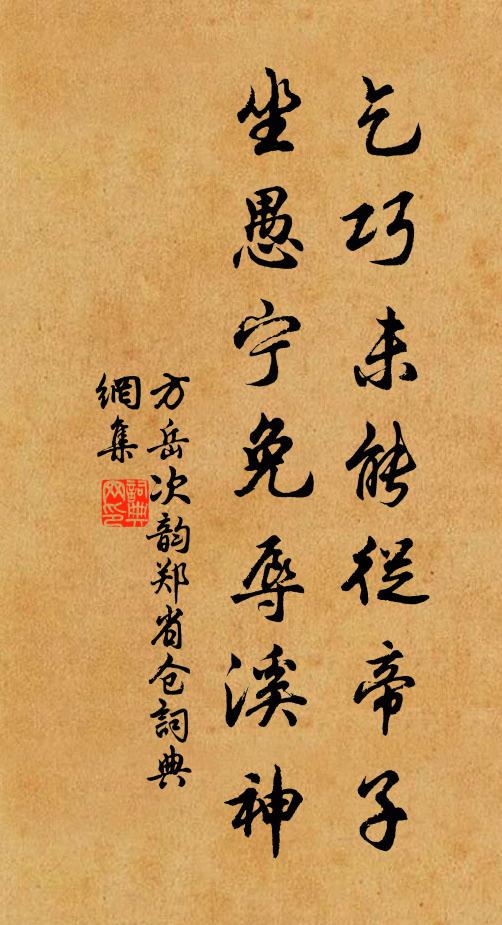 乞巧未能從帝子
坐愚宁免辱溪神
方岳次韵郑省仓詞典
網集
詞典
网印